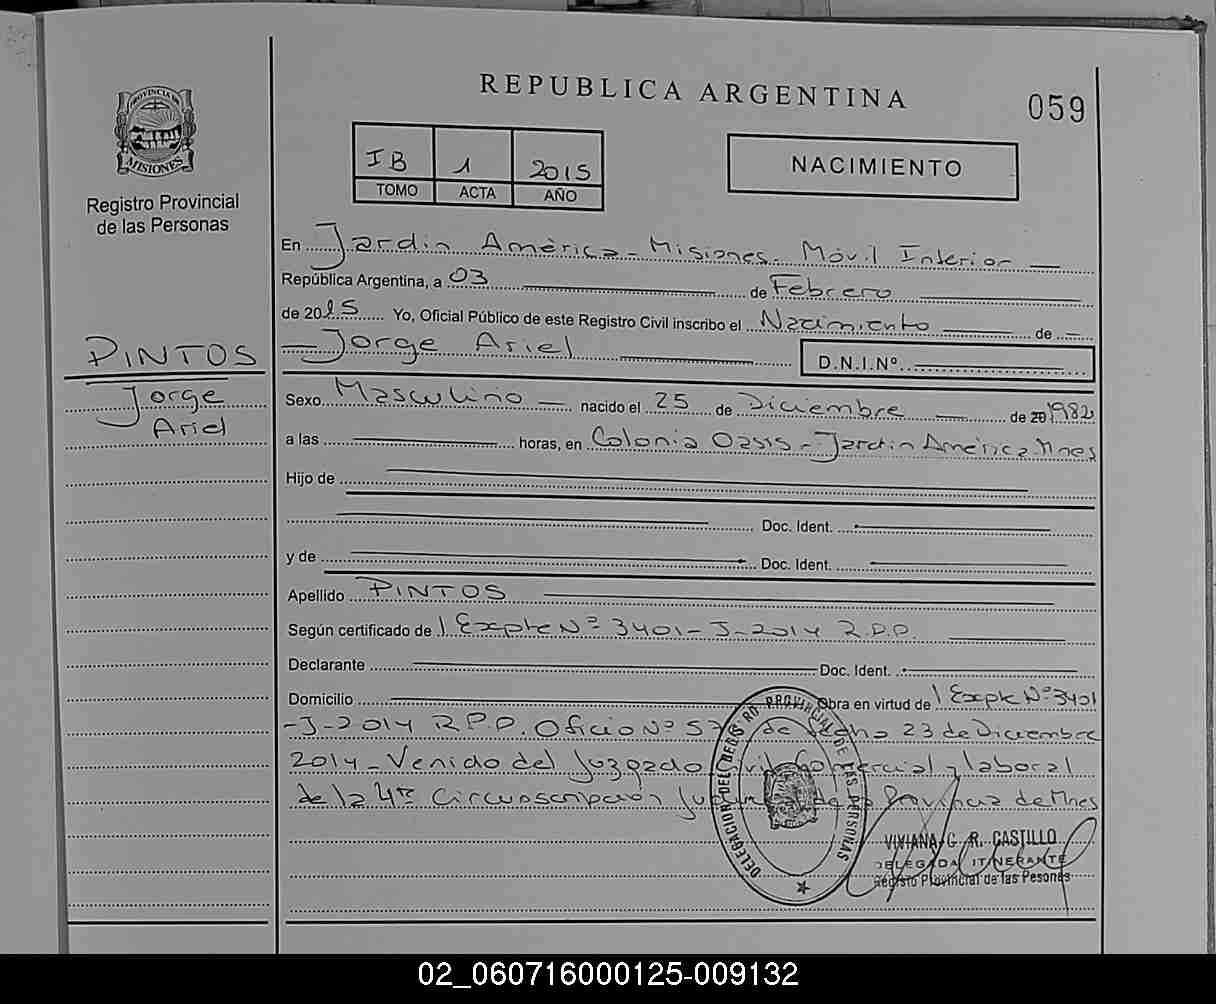 REPUBLICA ARGENTINA
059
PROVINCIA DE
MISIONES
Registro Provincial
de las Personas
IB 1 2015
TOMO ACTA AÑO
NACIMIENTO
En Jardín América - Misiones - Móvil Interior
República Argentina, a 03 de Febrero
de 2015 Yo, Oficial Público de este Registro Civil inscribo el Nacimiento de
Jorge Ariel D.N.I.Nº
PINTOS
Jorge
Ariel
Sexo Masculino nacido el 25 de Diciembre de 20 1982
a las horas, en Colonia Oasis - Jardín América Mnes
Hijo de
Doc. Ident.
y de Doc. Ident.
Apellido PINTOS
Según certificado de Expte Nº 3401-J-2014 R.P.P.
Declarante Doc. Ident.
Domicilio Obra en virtud de Expte Nº 3401
-J-2014 R.P.P. Oficio Nº de fecha 23 de Diciembre
2014 - Venido del Juzgado Civil Comercial y laboral
de la 4ta Circunscripción Judicial de la Provincia de Mnes
DELEGACION DEL REGISTRO PROVINCIAL DE LAS PERSONAS
VIVIANA G. R. CASTILLO
DELEGADA ITINERANTE
Registo Provincial de las Pesonas
02_060716000125-009132